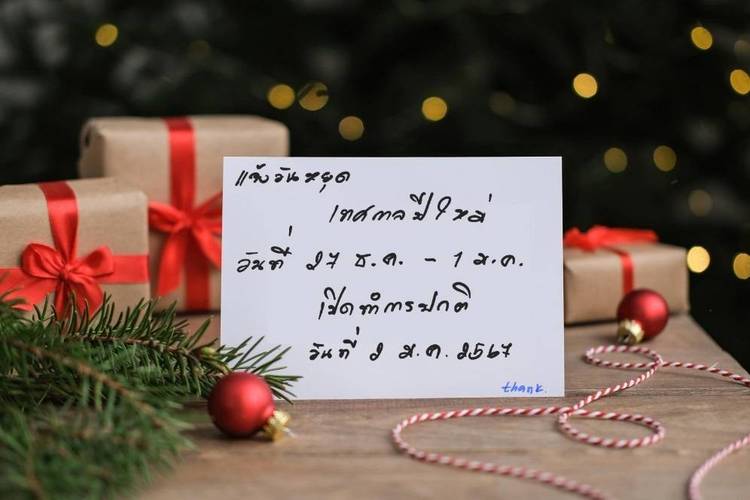 แจ้งวันหยุด
เทศกาลปีใหม่
วันที่ 27 ธ.ค. - 1 ม.ค.
เปิดทำการปกติ
วันที่ 2 ม.ค. 2567
thank.